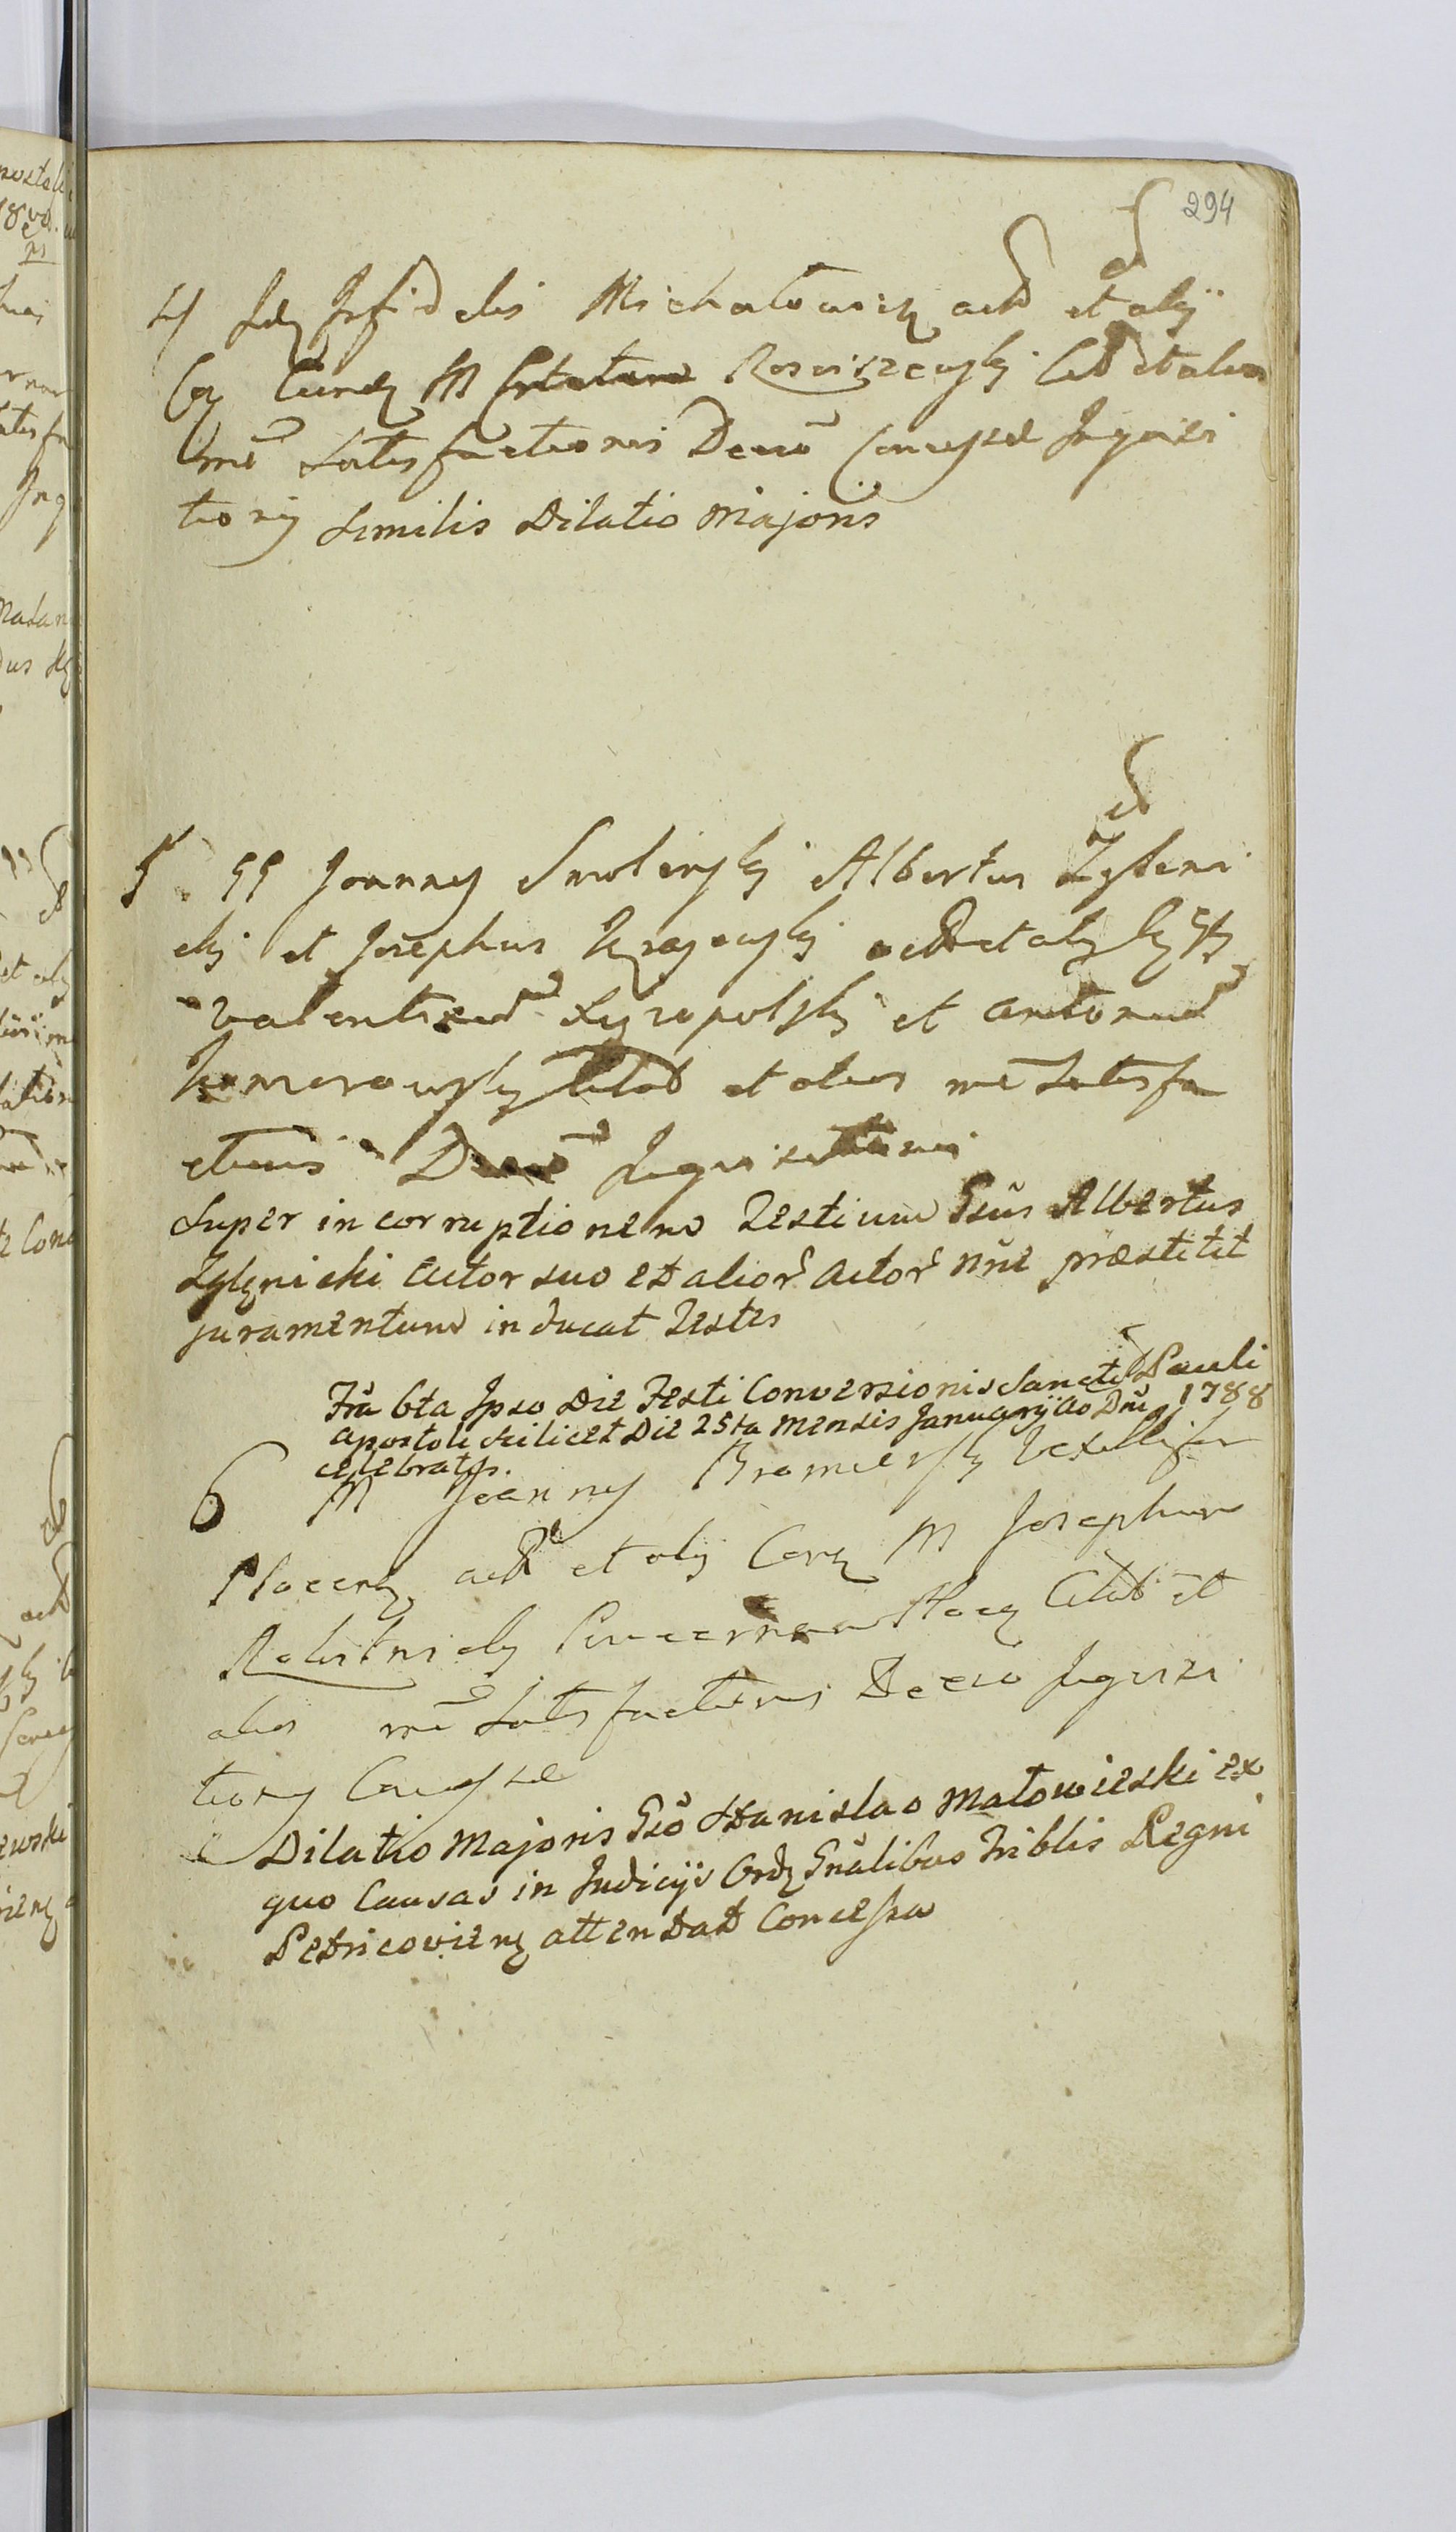 294
4 Idz Infidelis Michałowicz act et alij
Cz eundz M Rosciszewskj Citt et alios
me Satisfactionis Decro Compsse Inquisi
tionis Similis Dilatio Majoris
5 GG Joannes Smolinskj Albertus Zgleni
ckj et Josephus Krajewskj act et alij Cz GG
Valentinum Szyropolskj et Antonium
Komorowskj Citat et alios me Satisfa
ctionis Decro Inquisitionis
Super incorruptionem Testium Gsus Albertus
Zglęnicki Actor suo et alior Actor nne præstitit
juramentum inducat Testes
Fria 6ta Ipso Die Festi Conversionis Sancti Pauli
Apostoli scilicet Die 25ta Mensis Januarij Ao Dni 1788
celebratis.
6 M Joannes Bromierskj Vexillifer
Plocenz act et alij Conz M Josephum
Rokitnickj Pincernam Plocz Citat et
alios me Satisfactionis Decro Inquisi
tionis Compsse
Dilatio Majoris Gso Stanislao Małowieski ex
quo Causas in Judicijs Ordz Gnalibus Triblis Regni
Petricovienz attentat Concessa